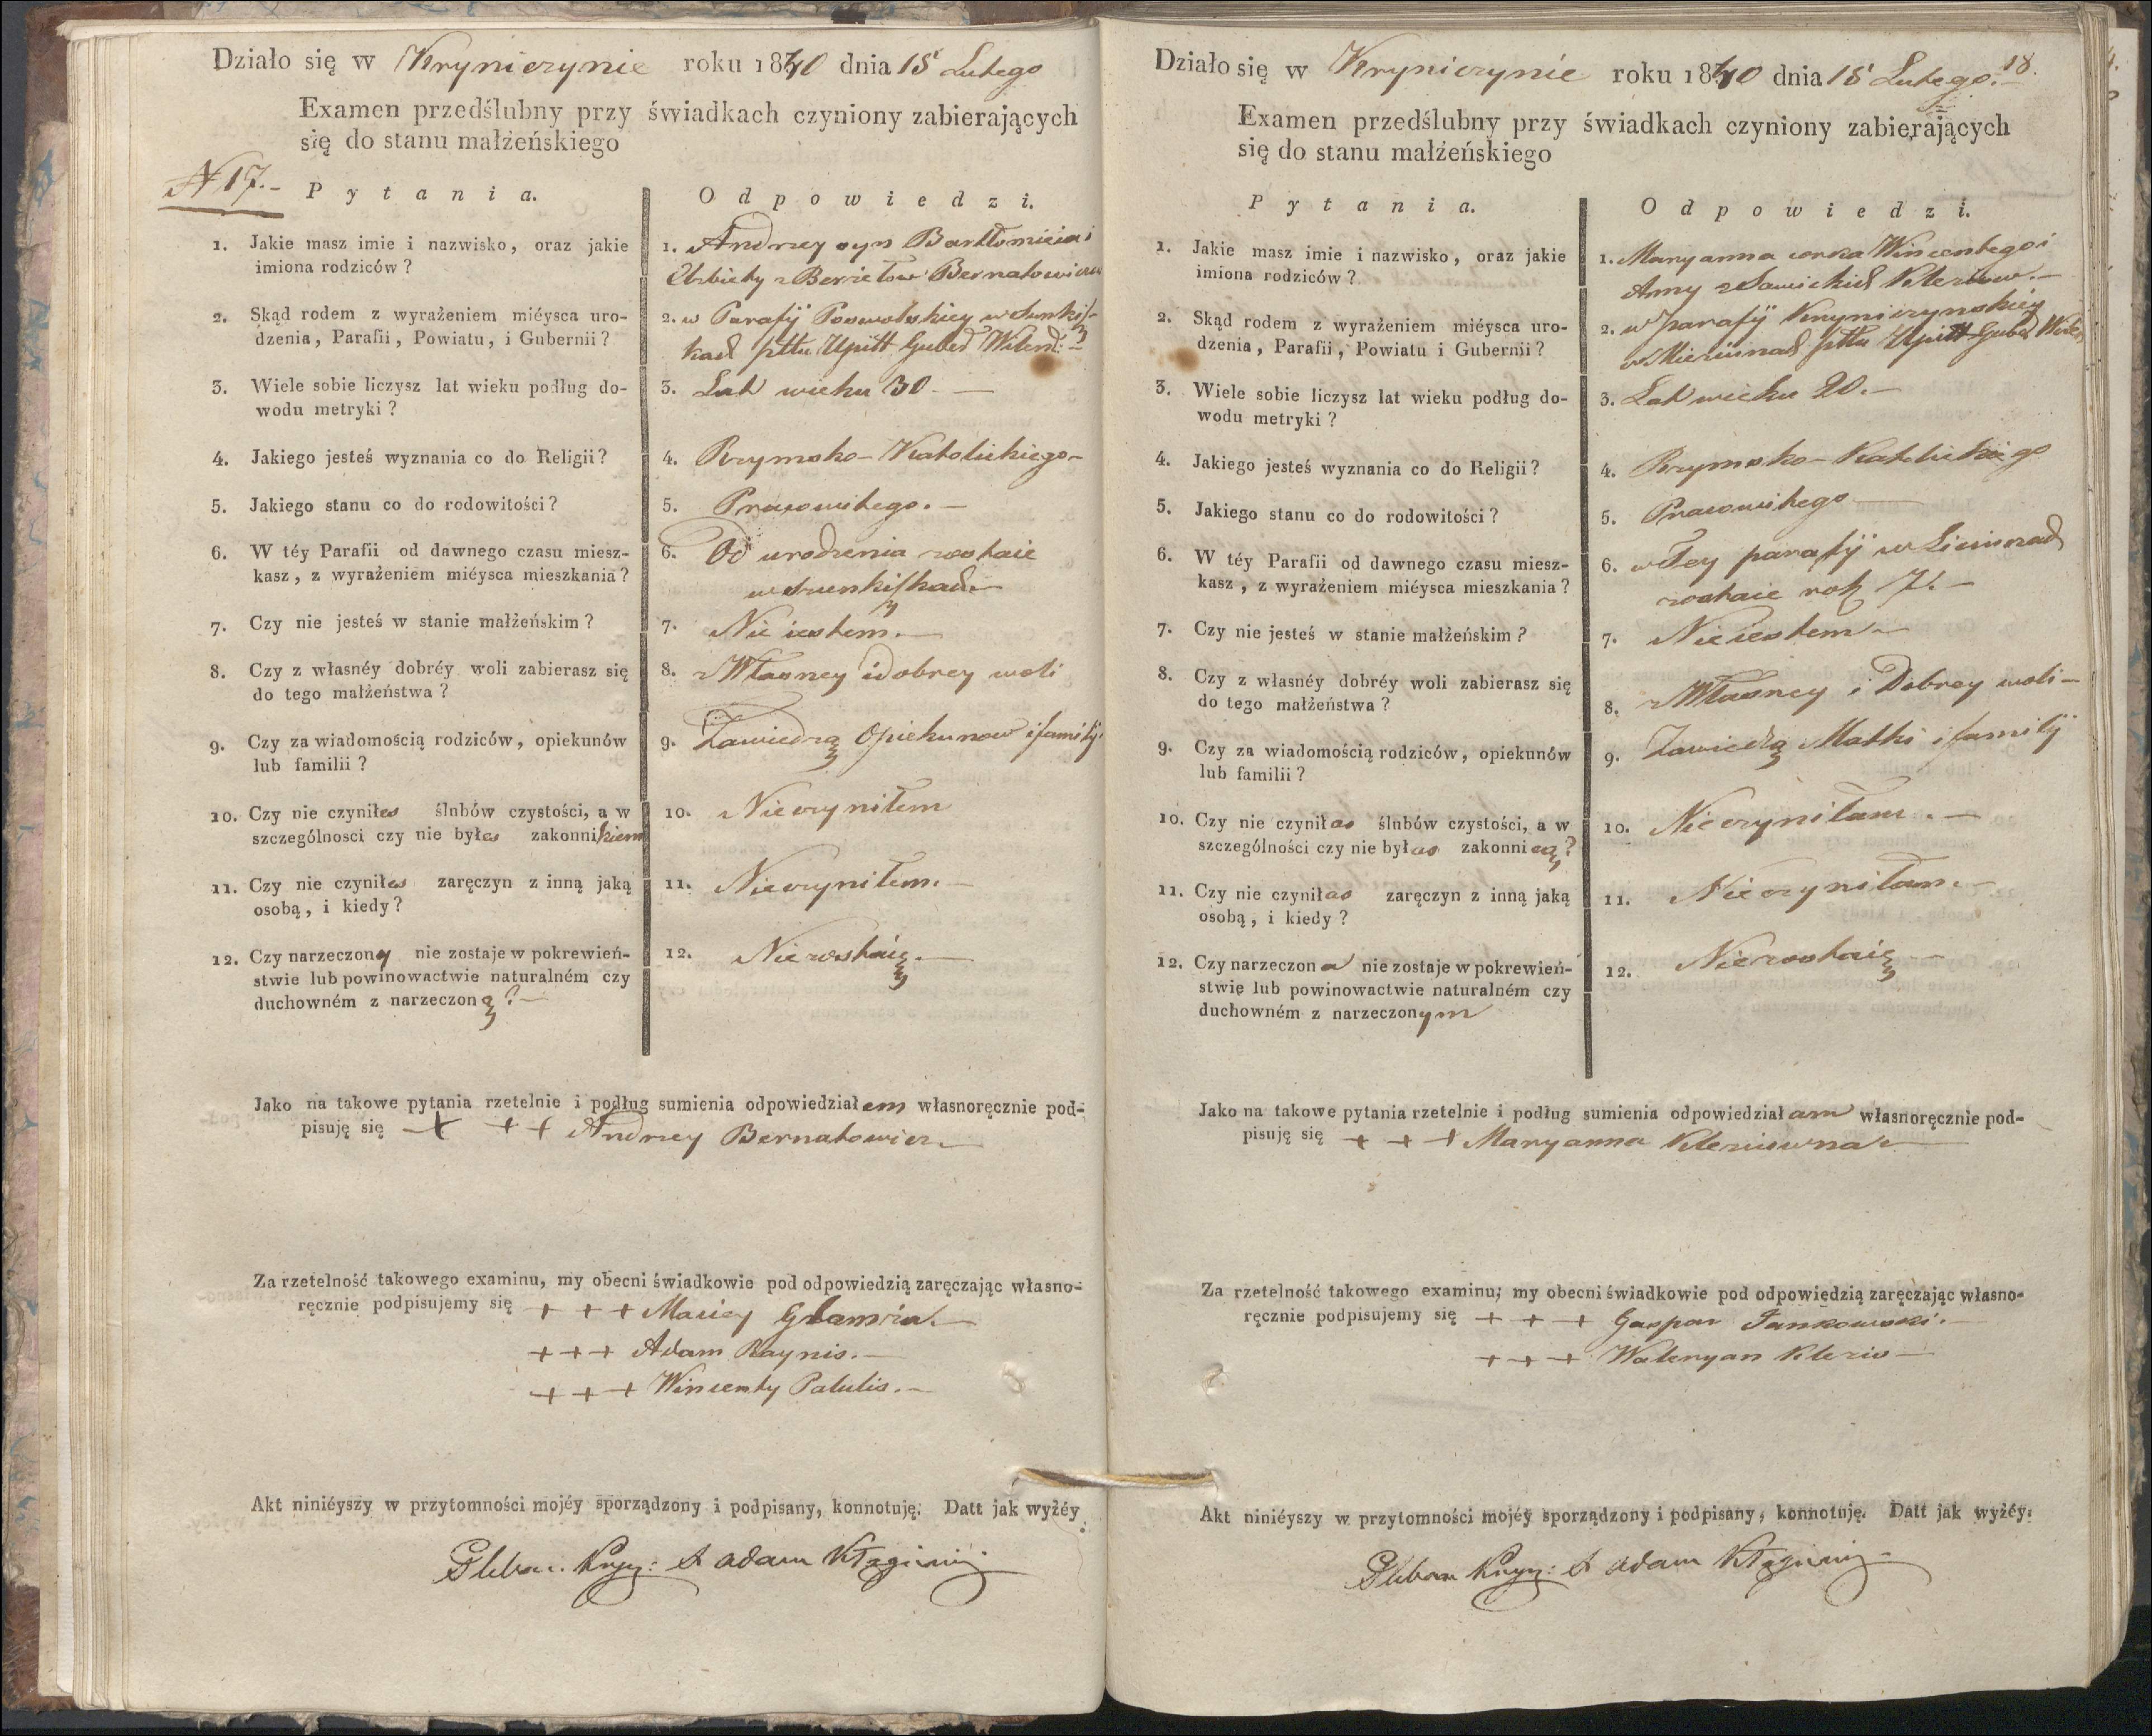 Działo się w Kryniczynie roku 1840 dnia 15 Lutego
Examen przedślubny przy świadkach czyniony zabierających
się do stanu małżeńskiego
N 17.-
Pytania.
Odpowiedzi.
1. Jakie masz imie i nazwisko, oraz jakie
imiona rodziców?
1. Andrzey syn Bartłomieia i
Elzbiety z Bernatowicz
2. Skąd rodem z wyrażeniem miéysca uro-
dzenia, Parafii, Powiatu, i Gubernii?
2. w Parafij w
pttu Upitt Guber Wilens:
3. Wiele sobie liczysz lat wieku podług do-
wodu metryki?
3. Lat wieku 30 —
4. Jakiego jesteś wyznania co do Religii?
4. Rzymsko-Katolickiego-
5. Jakiego stanu co do rodowitości?
5. Prawowitego. —
6. W téy Parafii od dawnego czasu miesz-
kasz, z wyrażeniem miéysca mieszkania?
6. Od urodzenia zostaie
7. Czy nie jesteś w stanie małżeńskim?
7. Nie iestem. —
8. Czy z własnéy dobréy woli zabierasz się
do tego małżeństwa?
8. z Własney i dobrey woli
9. Czy za wiadomością rodziców, opiekunów
lub familii?
9. Zawiedzą Opiekunow i familij
10. Czy nie czyniłes ślubów czystości, a w
szczególnosci czy nie byłes zakonnikiem
10. Nieczyniłem
11. Czy nie czyniłes zaręczyn z inną jaką
osobą, i kiedy?
11. Nieczyniłem. —
12. Czy narzeczony nie zostaje w pokrewień-
stwie lub powinowactwie naturalném czy
duchowném z narzeczoną? —
12. Niezostaię. —
Jako na takowe pytania rzetelnie i podług sumienia odpowiedziałem własnoręcznie pod-
pisuję się + + + Andrzey Bernatowicz
Za rzetelność takowego examinu, my obecni świadkowie pod odpowiedzią zaręczając własno-
ręcznie podpisujemy się + + + Maciey
+ + + Adam Raynis. —
+ + + Wincenty Patulis. —
Akt niniéyszy w przytomności mojéy sporządzony i podpisany, konnotuję. Datt jak wyżéy.
Pleban Kryn: X Adam
18.
Działo się w Kryniczynie roku 1840 dnia 15 Lutego. —
Examen przedślubny przy świadkach czyniony zabierających
się do stanu małżeńskiego
Pytania.
Odpowiedzi.
1. Jakie masz imie i nazwisko, oraz jakie
imiona rodziców?
1. Maryanna corka Wincentego i
Anny z Sawickich Kleziow. —
2. Skąd rodem z wyrażeniem miéysca uro-
dzenia, Parafii, Powiatu i Gubernii?
2. w parafij Kryniczynskiey
w pttu Upitt Guber Wilen
3. Wiele sobie liczysz lat wieku podług do-
wodu metryki?
3. Lat wieku 20. —
4. Jakiego jesteś wyznania co do Religii?
4. Rzymsko-Katolickiego
5. Jakiego stanu co do rodowitości?
5. Prawowitego —
6. W téy Parafii od dawnego czasu miesz-
kasz, z wyrażeniem miéysca mieszkania?
6. w Tey parafij w
zostaie rok 7. —
7. Czy nie jesteś w stanie małżeńskim?
7. Nieiestem —
8. Czy z własnéy dobréy woli zabierasz się
do tego małżeństwa?
8. z Własney i Dobrey woli —
9. Czy za wiadomością rodziców, opiekunów
lub familii?
9. Zawiedzą Matki i familij
10. Czy nie czyniłas ślubów czystości, a w
szczególności czy nie byłas zakonnicą?
10. Nieczyniłam. —
11. Czy nie czyniłas zaręczyn z inną jaką
osobą, i kiedy?
11. Nieczyniłam. —
12. Czy narzeczona nie zostaje w pokrewień-
stwie lub powinowactwie naturalném czy
duchowném z narzeczonym
12. Niezostaię —
Jako na takowe pytania rzetelnie i podług sumienia odpowiedziałam własnoręcznie pod-
pisuję się + + + Maryanna Kleziowna —
Za rzetelność takowego examinu; my obecni świadkowie pod odpowiedzią zaręczając własno-
ręcznie podpisujemy się + + + Gaspar Jankowski. —
+ + + Waleryan Klezis —
Akt niniéyszy w przytomności mojéy sporządzony i podpisany, konnotuję. Datt jak wyżéy.
Pleban Kryn: X Adam